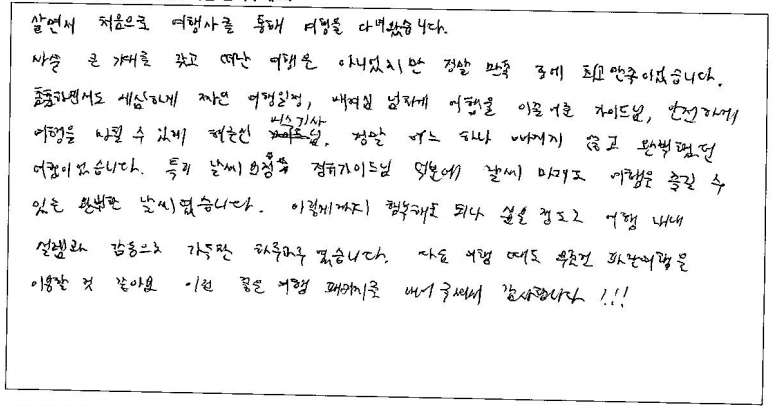 살면서 처음으로 여행사를 통해 여행을 다녀왔습니다.
사실 큰 기대를 갖고 떠난 여행은 아니었지만 정말 만족 중에 최고 만족이었습니다.
촘촘하면서도 세심하게 짜면 여행일정, 배려심 넘치게 여행을 이끌어준 가이드님, 안전하게
버스기사
여행을 마칠 수 있게 해준 님, 정말 어느 하나 빠지지 않고 완벽했던
여행이었습니다. 특히 날씨 요정 가이드님 덕분에 날씨 마저도 여행을 즐길 수
있는 완벽한 날씨였습니다. 이렇게까지 행복해도 되나 싶을 정도로 여행 내내
설렘과 감동으로 가득찬 하루하루 였습니다. 다음 여행 때도 무조건 파란여행을
이용할 것 같아요 이런 좋은 여행 패키지를 내어주셔서 감사합니다 !!!